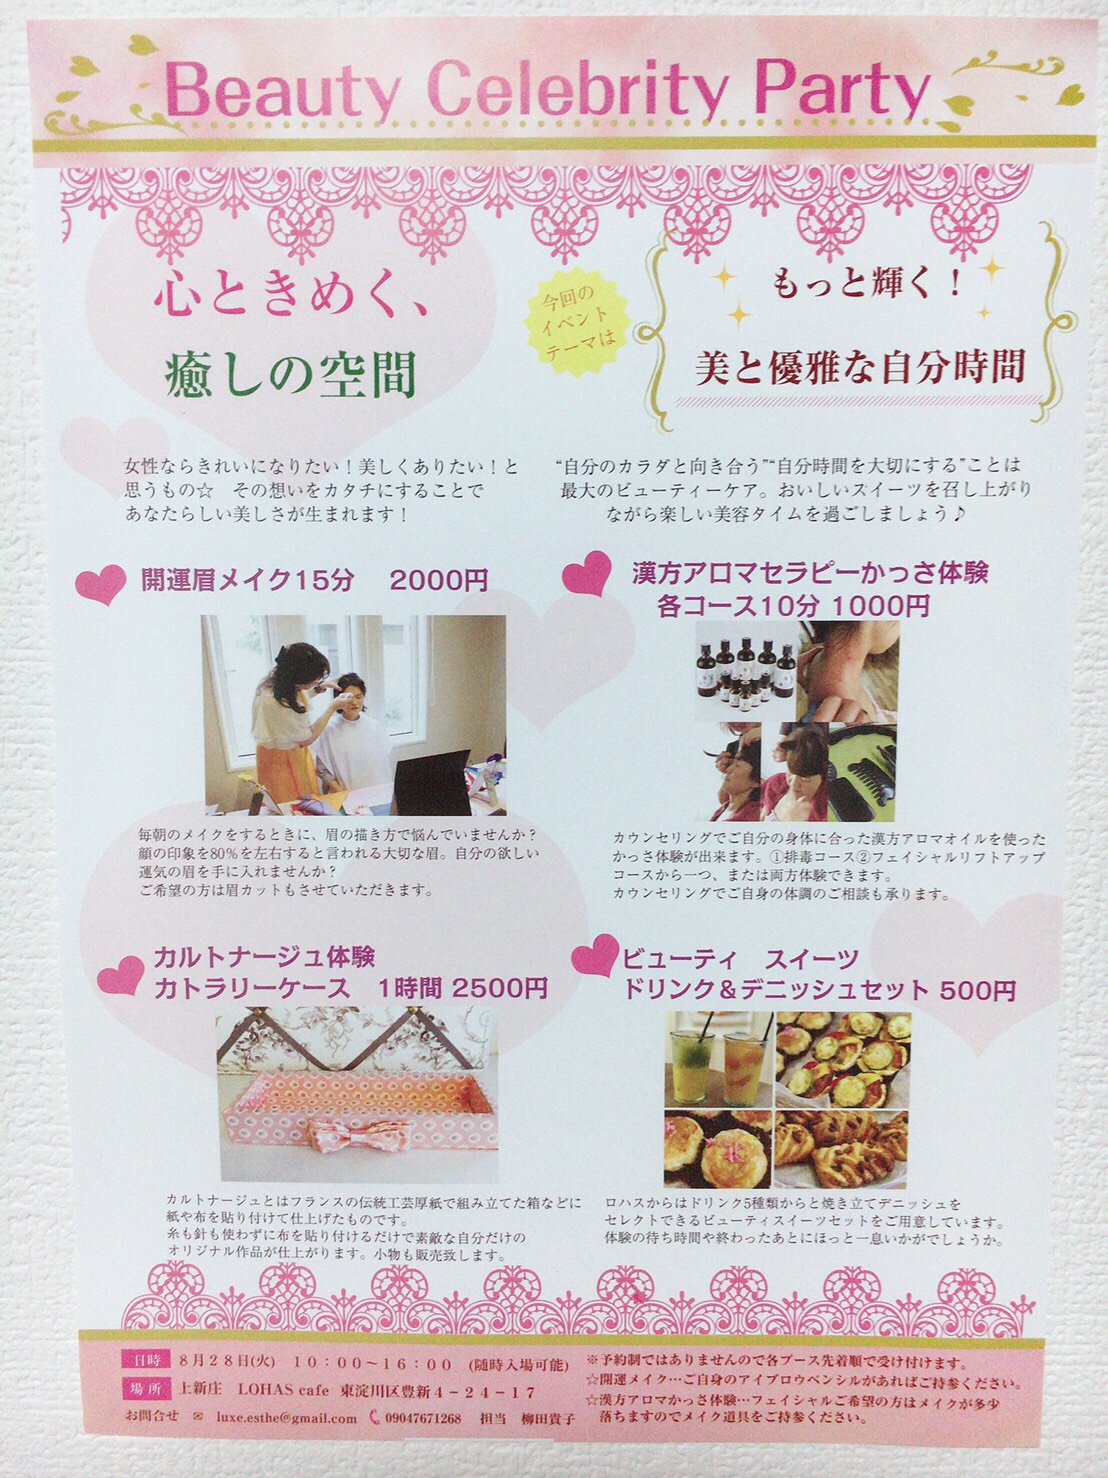 Beauty Celebrity Party
心ときめく、
癒しの空間
今回の
イベント
テーマは
もっと輝く！
美と優雅な自分時間
女性ならきれいになりたい！美しくありたい！と
思うもの☆　その想いをカタチにすることで
あなたらしい美しさが生まれます！
“自分のカラダと向き合う”“自分時間を大切にする”ことは
最大のビューティーケア。おいしいスイーツを召し上がり
ながら楽しい美容タイムを過ごしましょう♪
開運眉メイク15分　2000円
毎朝のメイクをするときに、眉の描き方で悩んでいませんか？
顔の印象を80%を左右すると言われる大切な眉。自分の欲しい
運気の眉を手に入れませんか？
ご希望の方は眉カットもさせていただきます。
漢方アロマセラピーかっさ体験
各コース10分 1000円
カウンセリングでご自分の身体に合った漢方アロマオイルを使った
かっさ体験が出来ます。①排毒コース②フェイシャルリフトアップ
コースから一つ、または両方体験できます。
カウンセリングでご自身の体調のご相談も承ります。
カルトナージュ体験
カトラリーケース　1時間 2500円
カルトナージュとはフランスの伝統工芸厚紙で組み立てた箱などに
紙や布を貼り付けて仕上げたものです。
糸も針も使わずに布を貼り付けるだけで素敵な自分だけの
オリジナル作品が仕上がります。小物も販売致します。
ビューティ　スイーツ
ドリンク＆デニッシュセット 500円
ロハスからはドリンク5種類からと焼き立てデニッシュを
セレクトできるビューティスイーツセットをご用意しています。
体験の待ち時間や終わったあとにほっと一息いかがでしょうか。
日時 8月28日(火)　10：00〜16：00　(随時入場可能)
場所 上新庄　LOHAS cafe　東淀川区豊新4－24－17
お問合せ ✉ luxe.esthe@gmail.com 09047671268 担当 柳田貴子
※予約制ではありませんので各ブース先着順で受け付けます。
☆開運メイク…ご自身のアイブロウペンシルがあればご持参ください。
☆漢方アロマかっさ体験…フェイシャルご希望の方はメイクが多少
落ちますのでメイク道具をご持参ください。